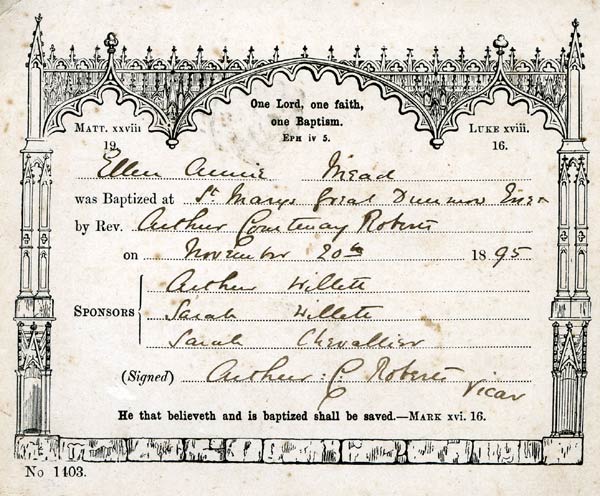 One Lord, one faith,
one Baptism.
EPH iv 5.
MATT. xxviii
19.
LUKE xviii.
16.
Ellen Annie Mead
was Baptized at St Marys Great Dunmow
by Rev. Arthur Courtenay Roberts
on November 20th 1895
SPONSORS
Arthur Willett
Sarah Willett
Sarah Chevallier
(Signed) Arthur: C. Roberts
Vicar
He that believeth and is baptized shall be saved.—MARK xvi. 16.
No 1403.